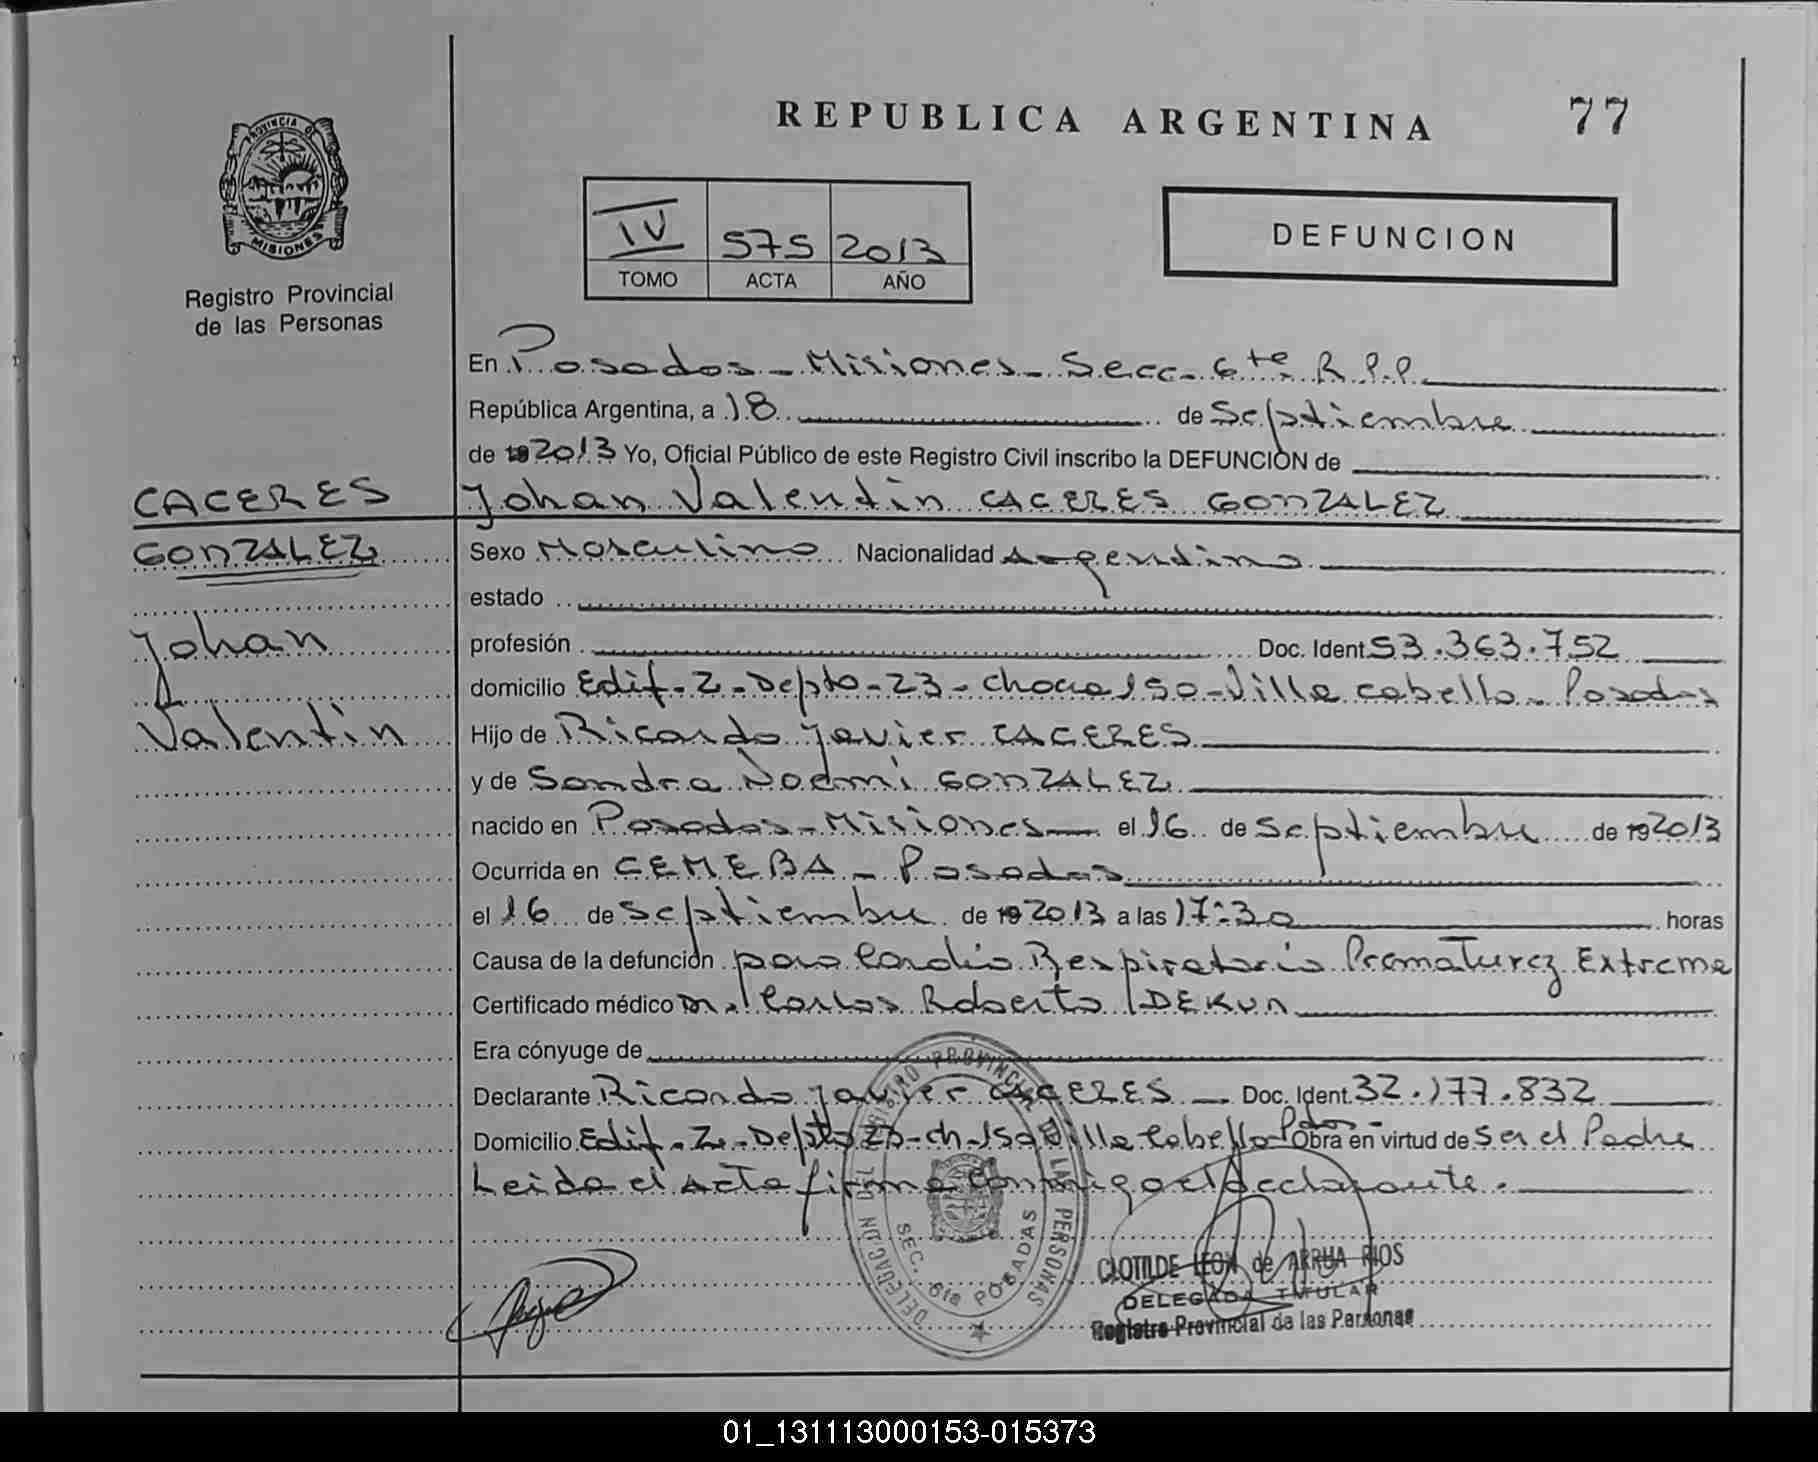 REPUBLICA ARGENTINA
77
PROVINCIA DE
MISIONES
Registro Provincial
de las Personas
IV 575 2013
TOMO ACTA AÑO
DEFUNCION
En Posadas - Misiones - Secc. 6ta R.P.P.
República Argentina, a 18 de Septiembre
de 19 2013 Yo, Oficial Público de este Registro Civil inscribo la DEFUNCION de
CACERES
Johan Valentin CACERES GONZALEZ
GONZALEZ
Sexo Masculino Nacionalidad Argentino
estado
Johan
profesión Doc. Ident. 53.363.752
domicilio Edif. 2 - Depto - 23 - chacra 150 - Villa cabello - Posadas
Valentin
Hijo de Ricardo Javier CACERES
y de Sandra Noemi GONZALEZ
nacido en Posadas - Misiones el 16 de Septiembre de 19 2013
Ocurrida en CEMEBA - Posadas
el 16 de Septiembre de 19 2013 a las 17:30 horas
Causa de la defunción paro Cardio Respiratorio Prematurez Extrema
Certificado médico Dr. Carlos Roberto DEKUN
Era cónyuge de
Declarante Ricardo Javier CACERES Doc. Ident. 32.177.832
Domicilio Edif. 2 - Depto 23 - ch-150 Villa Cabello Pdas - Obra en virtud de Ser el Padre
Leida el Acta firma Conmigo el declarante.
DELEGACION DEL REGISTRO PROVINCIAL DE LAS PERSONAS
SEC. 6ta POSADAS
CLOTILDE LEON de ARRUA RIOS
DELEGADA TITULAR
Registro Provincial de las Personas
01_131113000153-015373